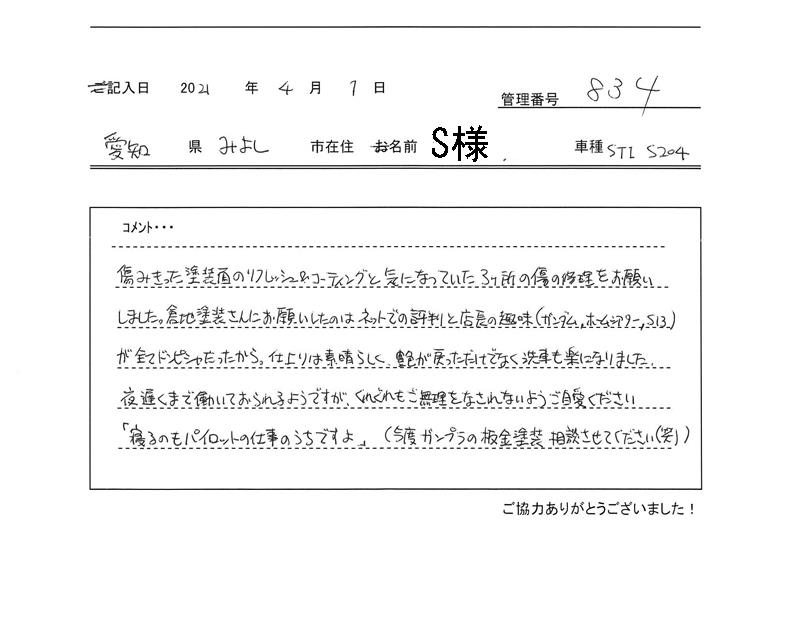 ご記入日 2021 年 4 月 1 日
管理番号 834
愛知 県 みよし 市在住 お名前 S様 車種 STI S204
コメント・・・
傷みきった塗装面のリフレッシュ&コーティングと気になっていた3ヶ所の傷の修理をお願い
しました。倉地塗装さんにお願いしたのはネットでの評判と店長の趣味(ガンダム,ホームシアター,S13)
が全てドンピシャだったから。仕上りは素晴らしく、艶が戻っただけでなく洗車も楽になりました。
夜遅くまで働いておられるようですが、くれぐれもご無理をなされないようご自愛ください
「寝るのもパイロットの仕事のうちですよ」 (今度ガンプラの板金塗装 相談させてください(笑))
ご協力ありがとうございました!